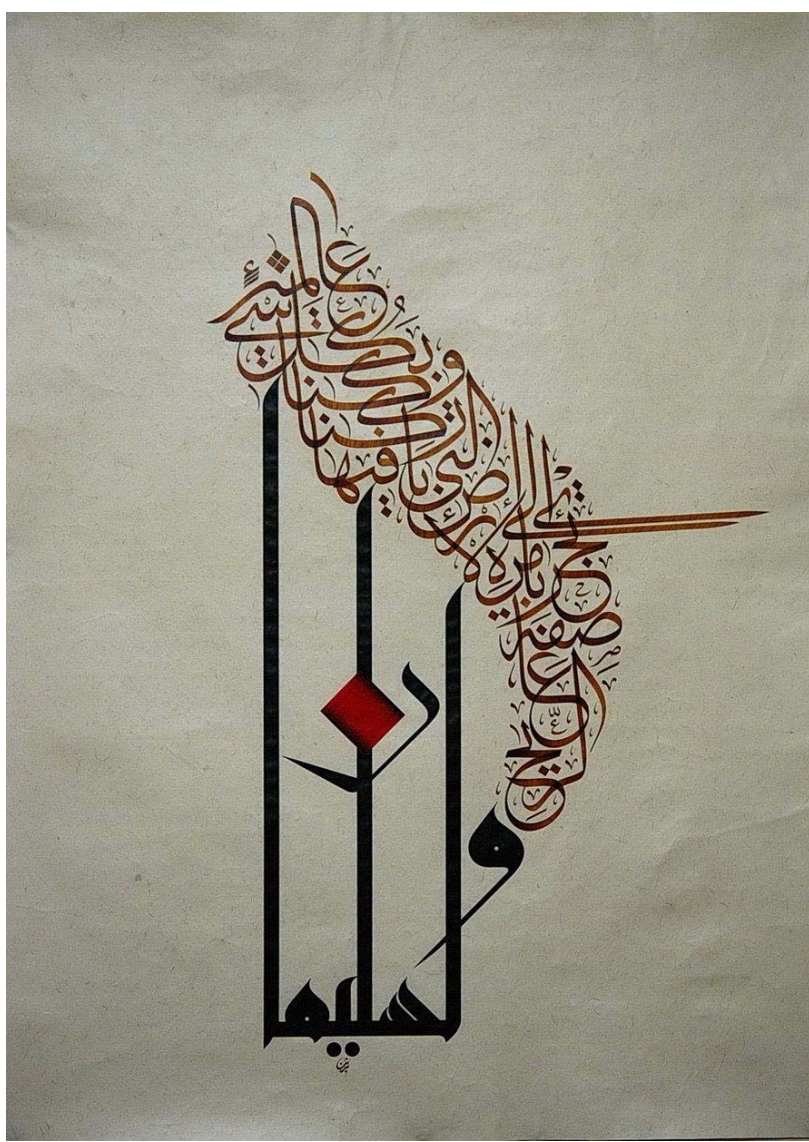 ولسليمان
الريح عاصفة تجري بأمره إلى الأرض التي باركنا فيها وكنا بكل شيء عالمين